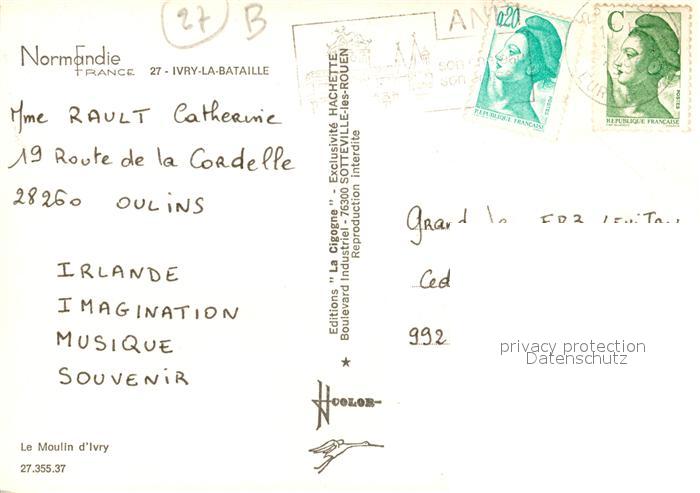 27 B
Normandie
FRANCE 27 - IVRY-LA-BATAILLE
Mme RAULT Catherine
19 Route de la Cordelle
28260 OULINS
IRLANDE
IMAGINATION
MUSIQUE
SOUVENIR
Le Moulin d'Ivry
27.355.37
Editions "La Cigogne" - Exclusivité HACHETTE
Boulevard Industriel - 76300 SOTTEVILLE-les-ROUEN
Reproduction interdite
COLOR
AN
son
son
0,20
POSTES
REPUBLIQUE FRANÇAISE
C
POSTES
REPUBLIQUE FRANÇAISE
EUR
Ced
992
privacy protection
Datenschutz